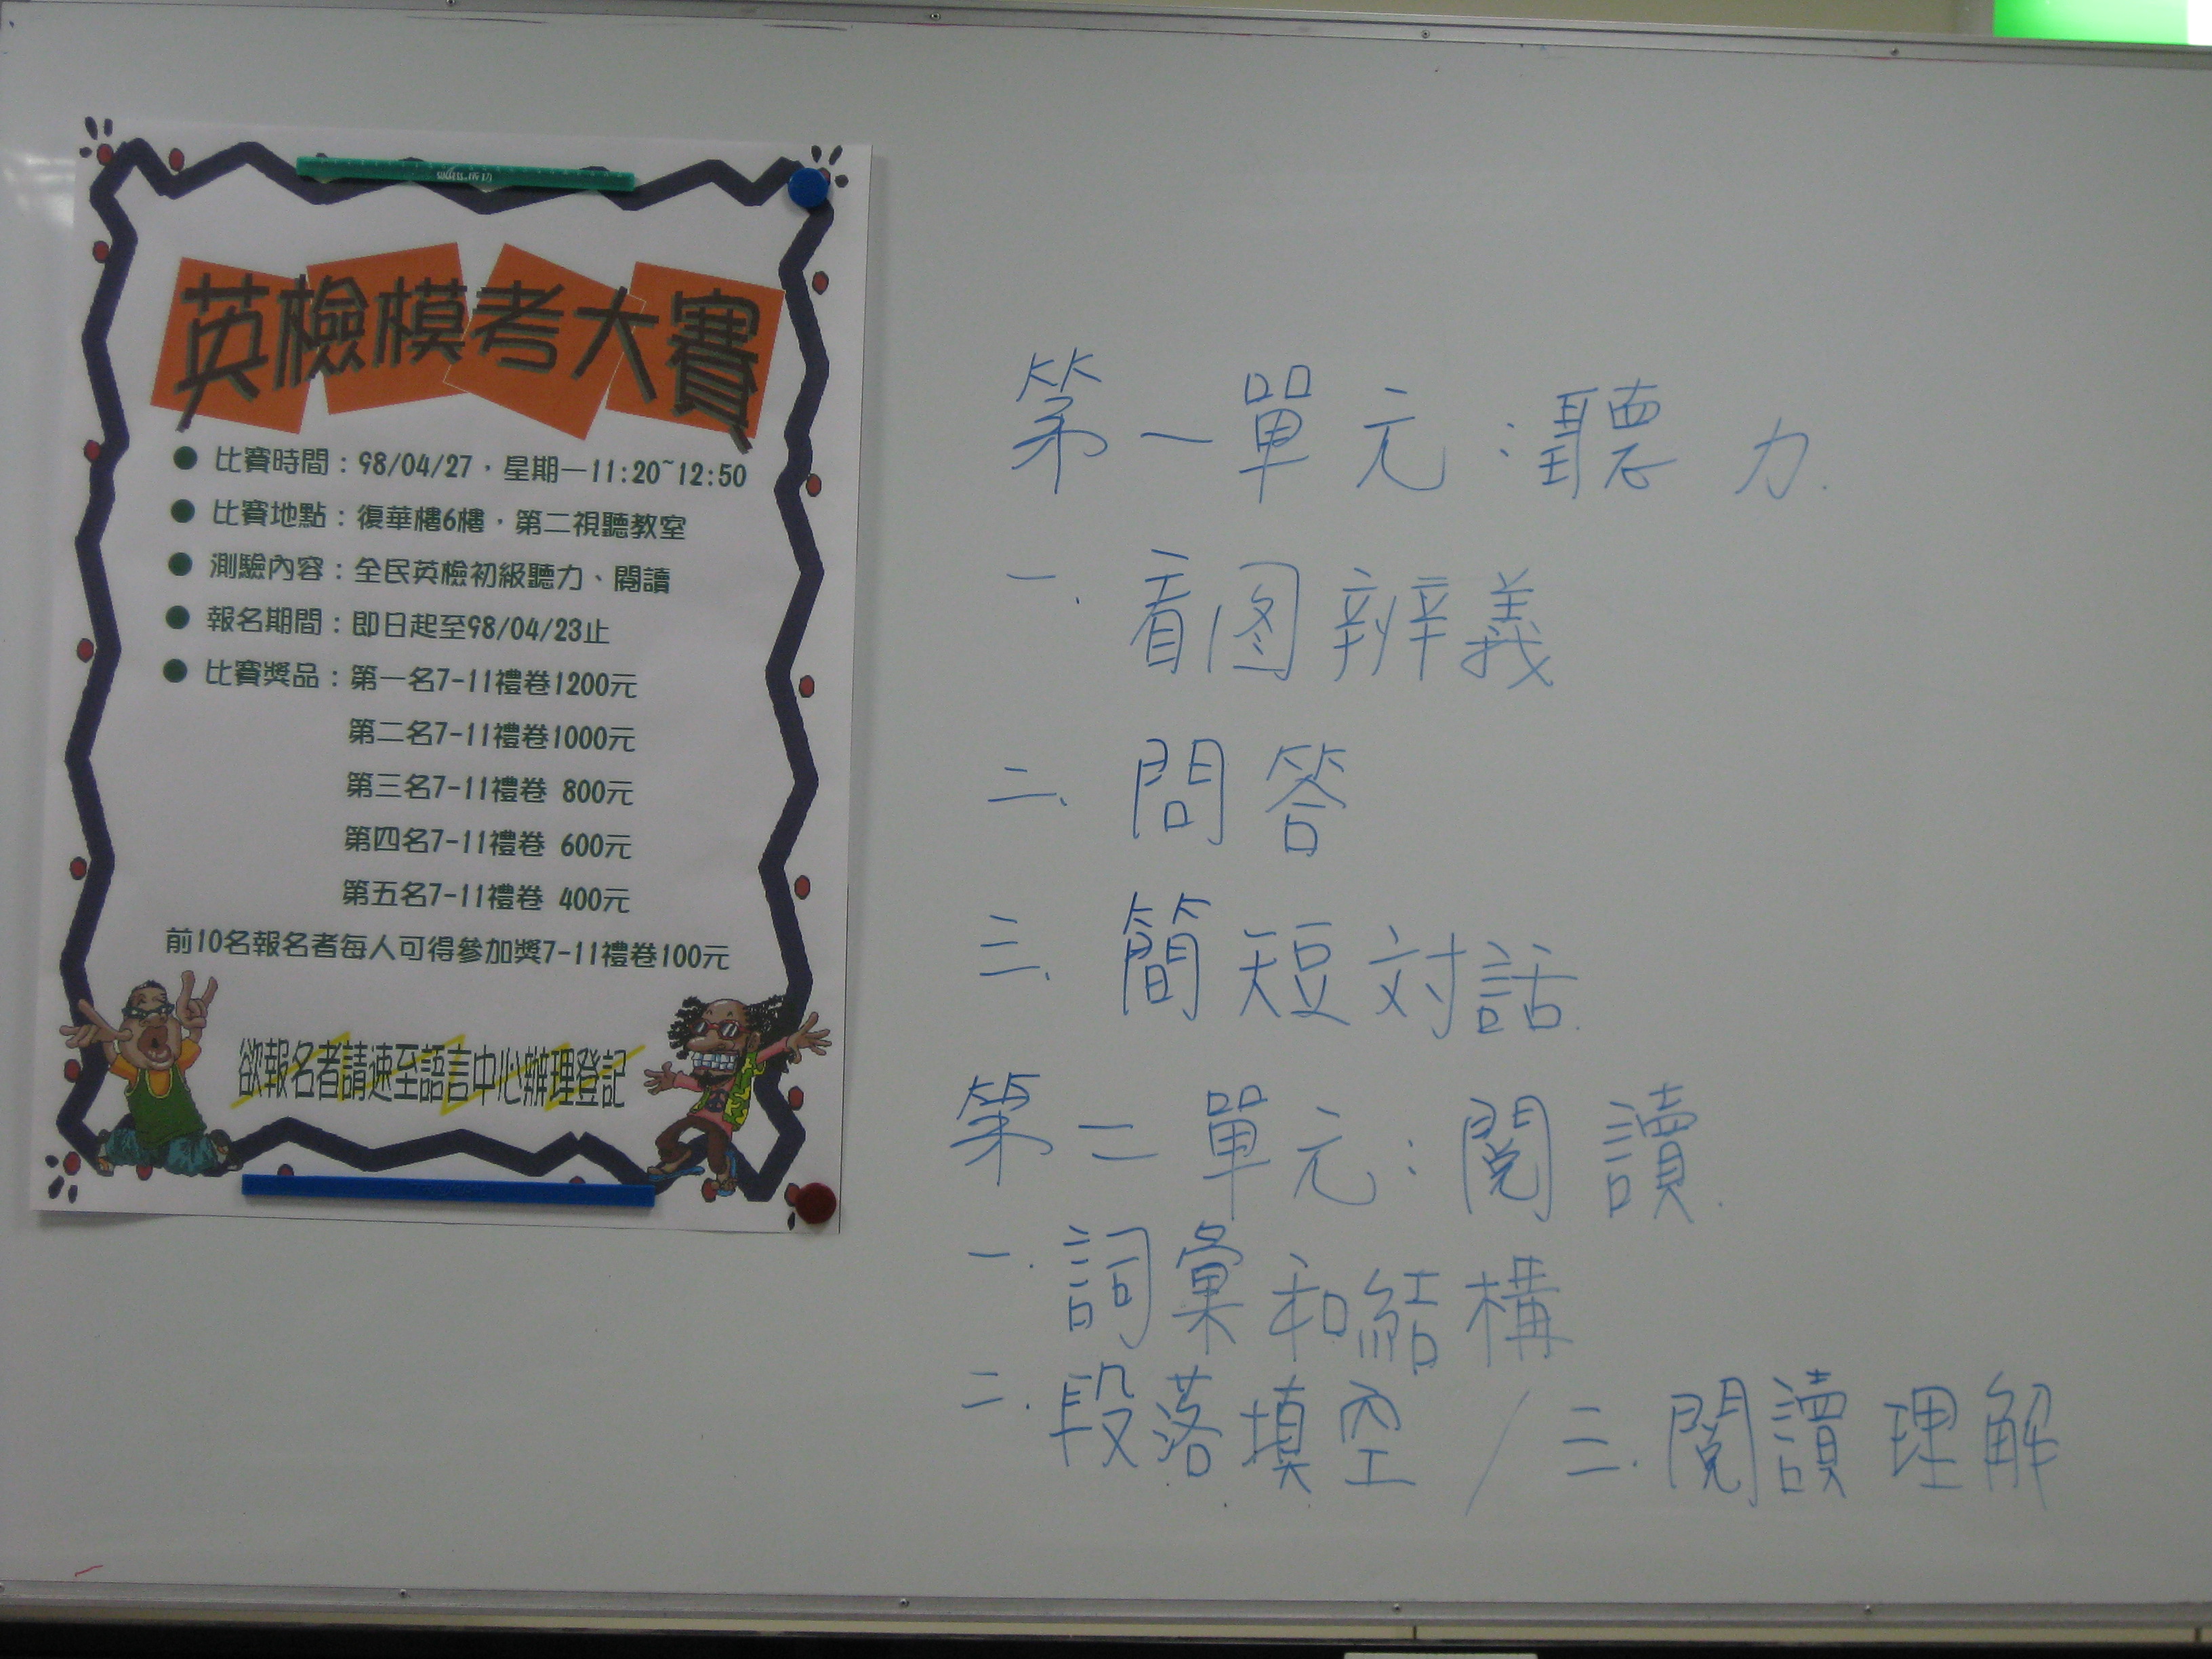 英檢模考大賽
● 比賽時間：98/04/27，星期一11:20~12:50
● 比賽地點：復華樓6樓，第二視聽教室
● 測驗內容：全民英檢初級聽力、閱讀
● 報名期間：即日起至98/04/23止
● 比賽獎品：第一名7-11禮卷1200元
第二名7-11禮卷1000元
第三名7-11禮卷 800元
第四名7-11禮卷 600元
第五名7-11禮卷 400元
前10名報名者每人可得參加獎7-11禮卷100元
欲報名者請速至語言中心辦理登記
第一單元：聽力.
一. 看図辨義
二、問答
三、簡短対話.
第二單元：閱讀.
一. 詞彙和結構
二. 段落填空 / 三. 閱讀理解